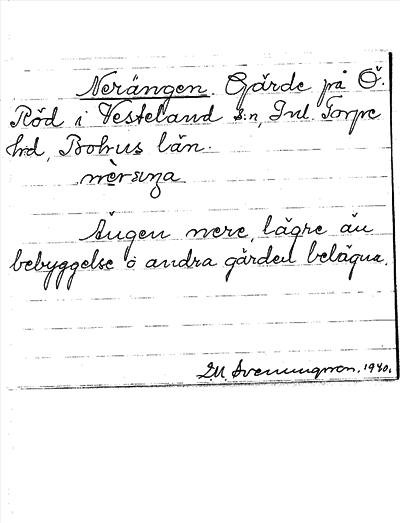 Nerängen. Gärde på Ö.
Röd i Vesteland s:n, Inl. Torpe
hd, Bohus län.
Ängen nere, lägre än
bebyggelse o andra gärden belägna.
Svenungsson. 1940.